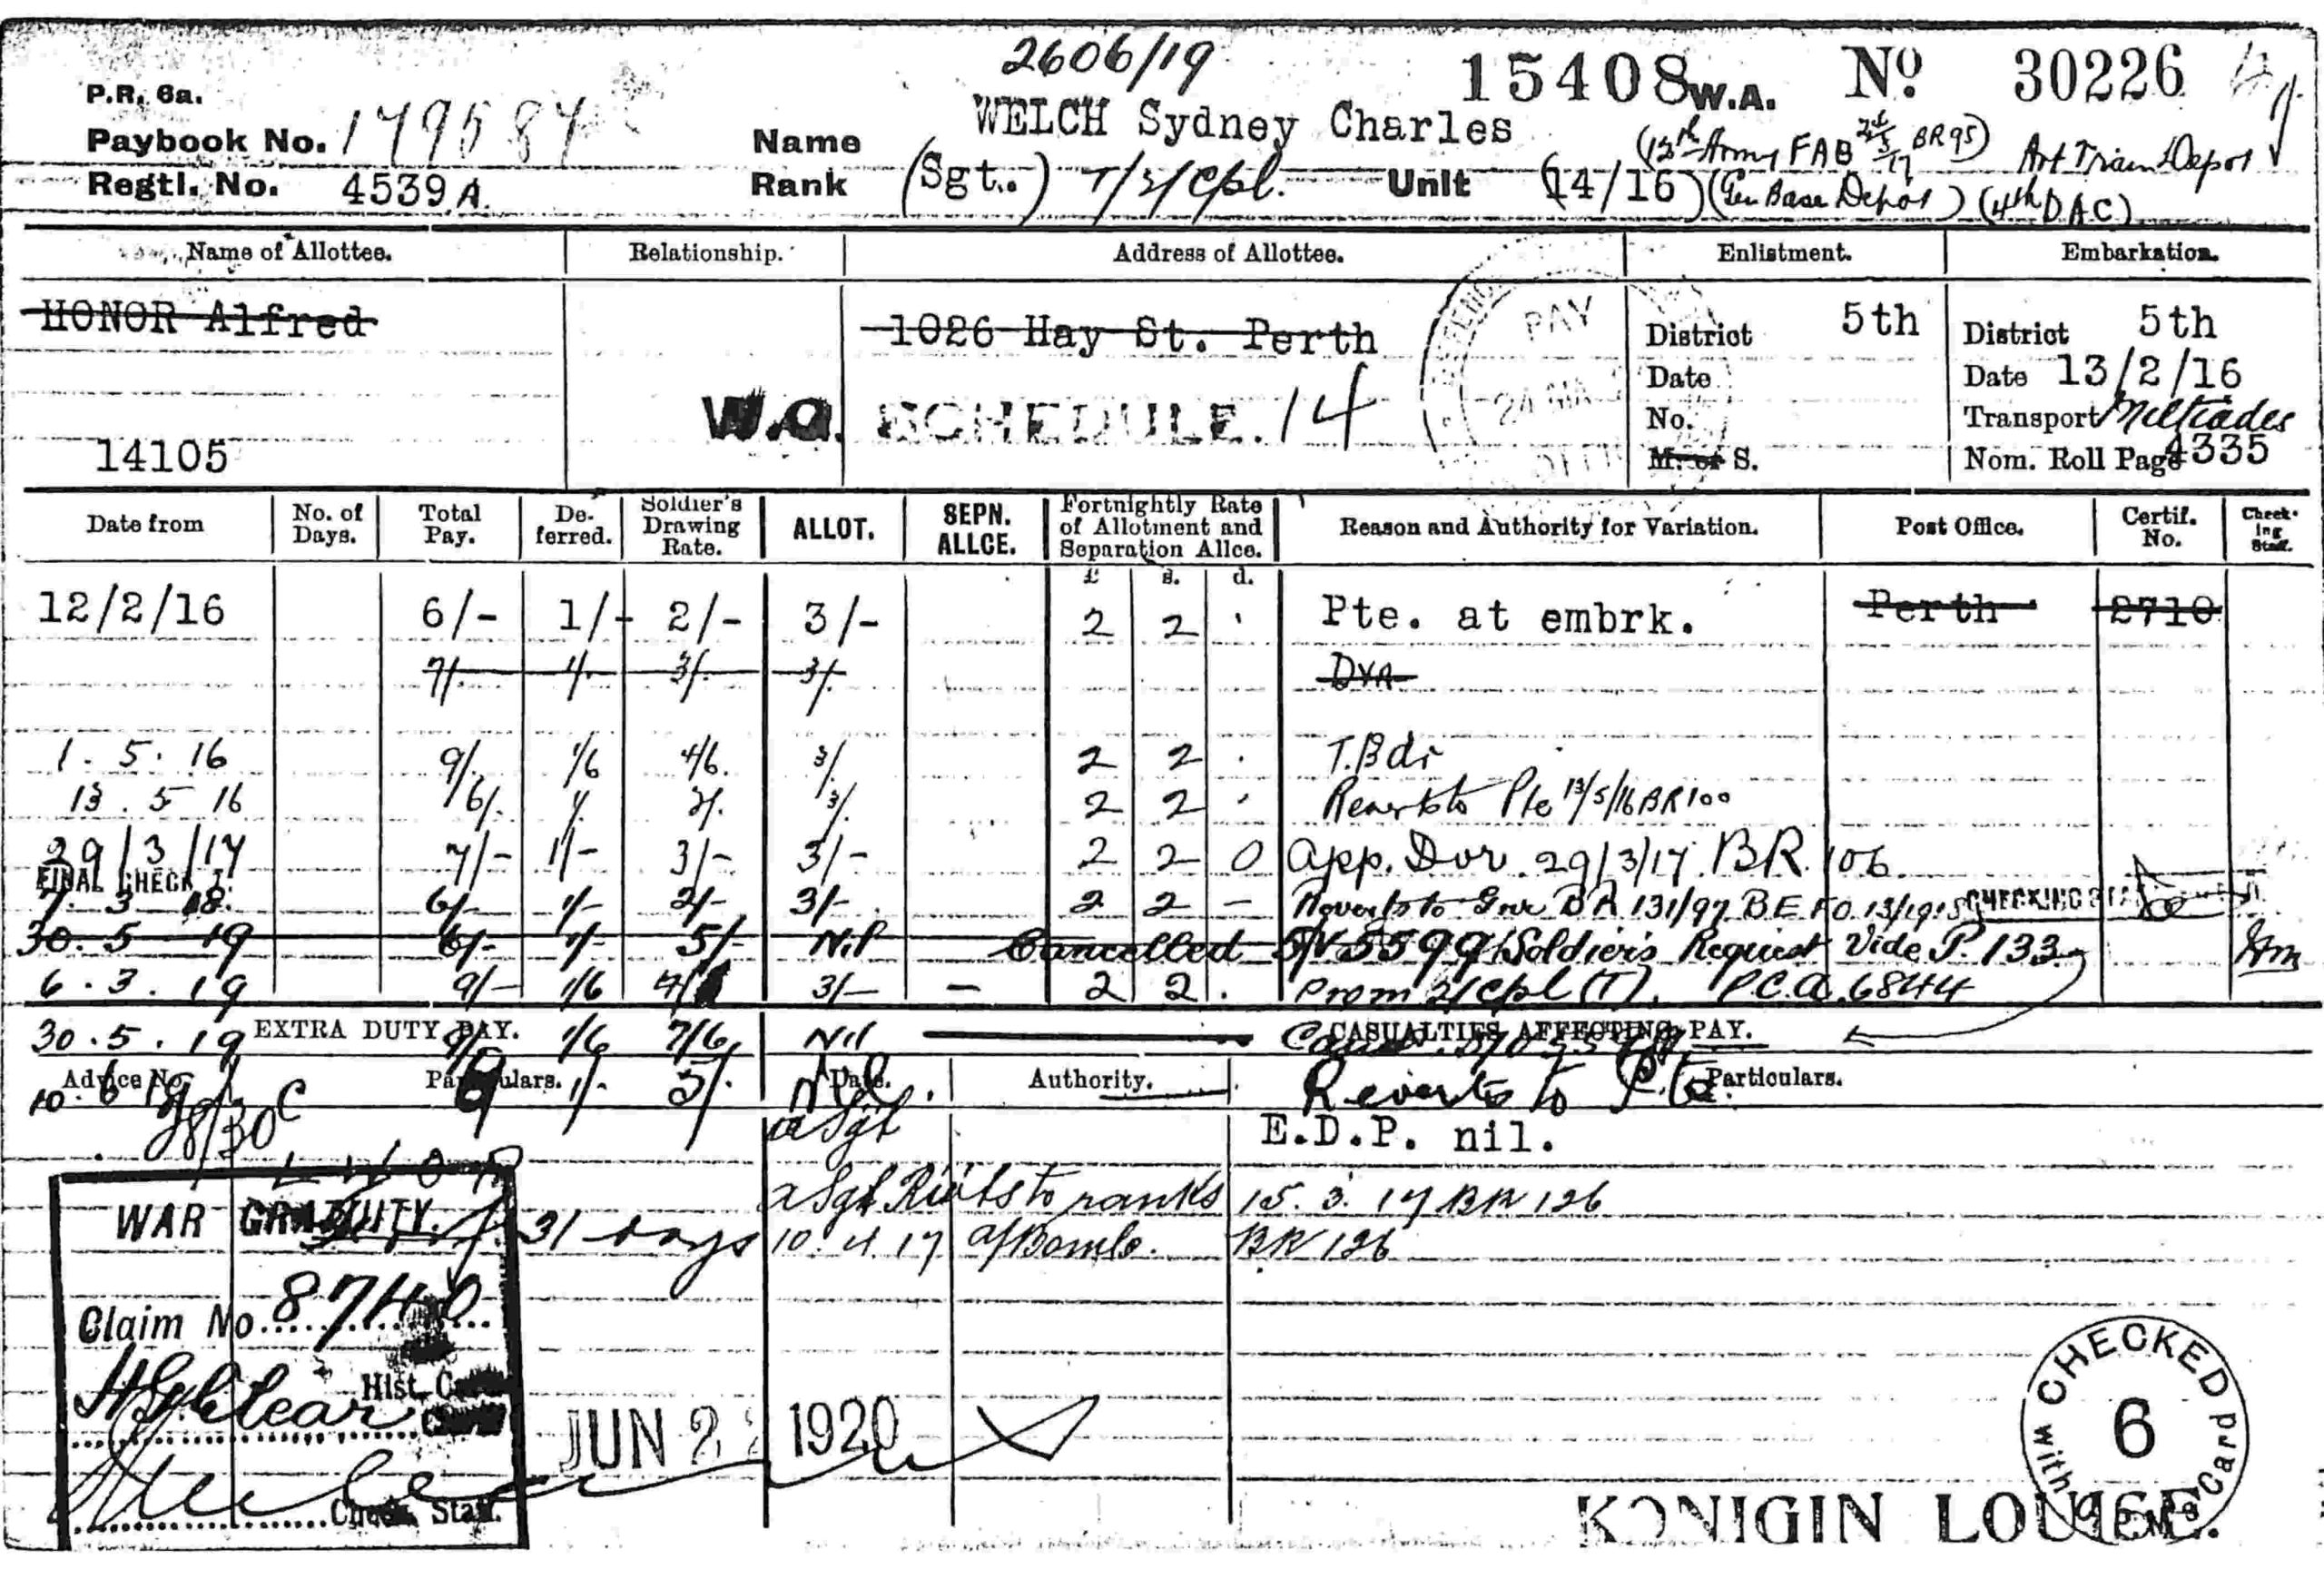 2606/19
15408 W.A. No 30226
P.R. 6a.
Paybook No. 179587
Name WELCH Sydney Charles
(12th Army FAB BR95) Art Train Depot
Regtl. No. 4539A.
Rank (Sgt.) T/2/Cpl. Unit (14/16) (Gen Base Depot) (4th DAC)
Name of Allottee. Relationship. Address of Allottee. Enlistment. Embarkation.
HONOR Alfred 1026 Hay St. Perth PAY District 5th District 5th
Date Date 13/2/16
W.A. SCHEDULE. 14 No. Transport Miltiades
14105 M. or S. Nom. Roll Page 4335
Date from No. of Days. Total Pay. De- ferred. Soldier's Drawing Rate. ALLOT. SEPN. ALLCE. Fortnightly Rate of Allotment and Separation Allce. Reason and Authority for Variation. Post Office. Certif. No. Check- ing Staff.
£ s. d.
12/2/16 6/- 1/- 2/- 3/- 2 2 Pte. at embrk. Perth 2710
7/. 1/. 3/. 3/. Dvr
1. 5. 16 9/. 1/6 4/6. 3/. 2 2 . T.Bdr
13. 5 16 6/. 1/. 2/. 3/. 2 2 Reverts to Pte 13/5/16 BR100
29/3/17 7/- 1/- 3/- 3/- 2 2 0 App. Dvr. 29/3/17. BR. 106.
FINAL CHECK
7. 3 18. 6/- 1/- 2/- 3/- 2 2 - Reverts to Gnr BR 131/97 BEF O 13/1918 CHECKING
30. 5 19 6/- 1/- 5/- Nil Cancelled 5599 Soldier's Request Vide P. 133
6. 3. 19 9/- 1/6 3/- - 2 2 . Prom 2/Cpl (T). P.C.A. 6844
30. 5. 19 EXTRA DUTY PAY. 1/6 7/6 Nil CASUALTIES AFFECTING PAY.
Advice No. Particulars. Date. Authority. Particulars.
10. 6 19 1/- 5/. Nil. Reverts to Pte.
28/30 C a Sgt E.D.P. nil.
a Sgt Rvts to ranks 15. 3. 17 BR 126
WAR GRATUITY. 31 days 10. 4. 17 a/Bomb. BR 126
Claim No. 8740
Hist. Card
JUN 2 1920
Check. Staff.
CHECKED with Card
6
KONIGIN LOUISE.